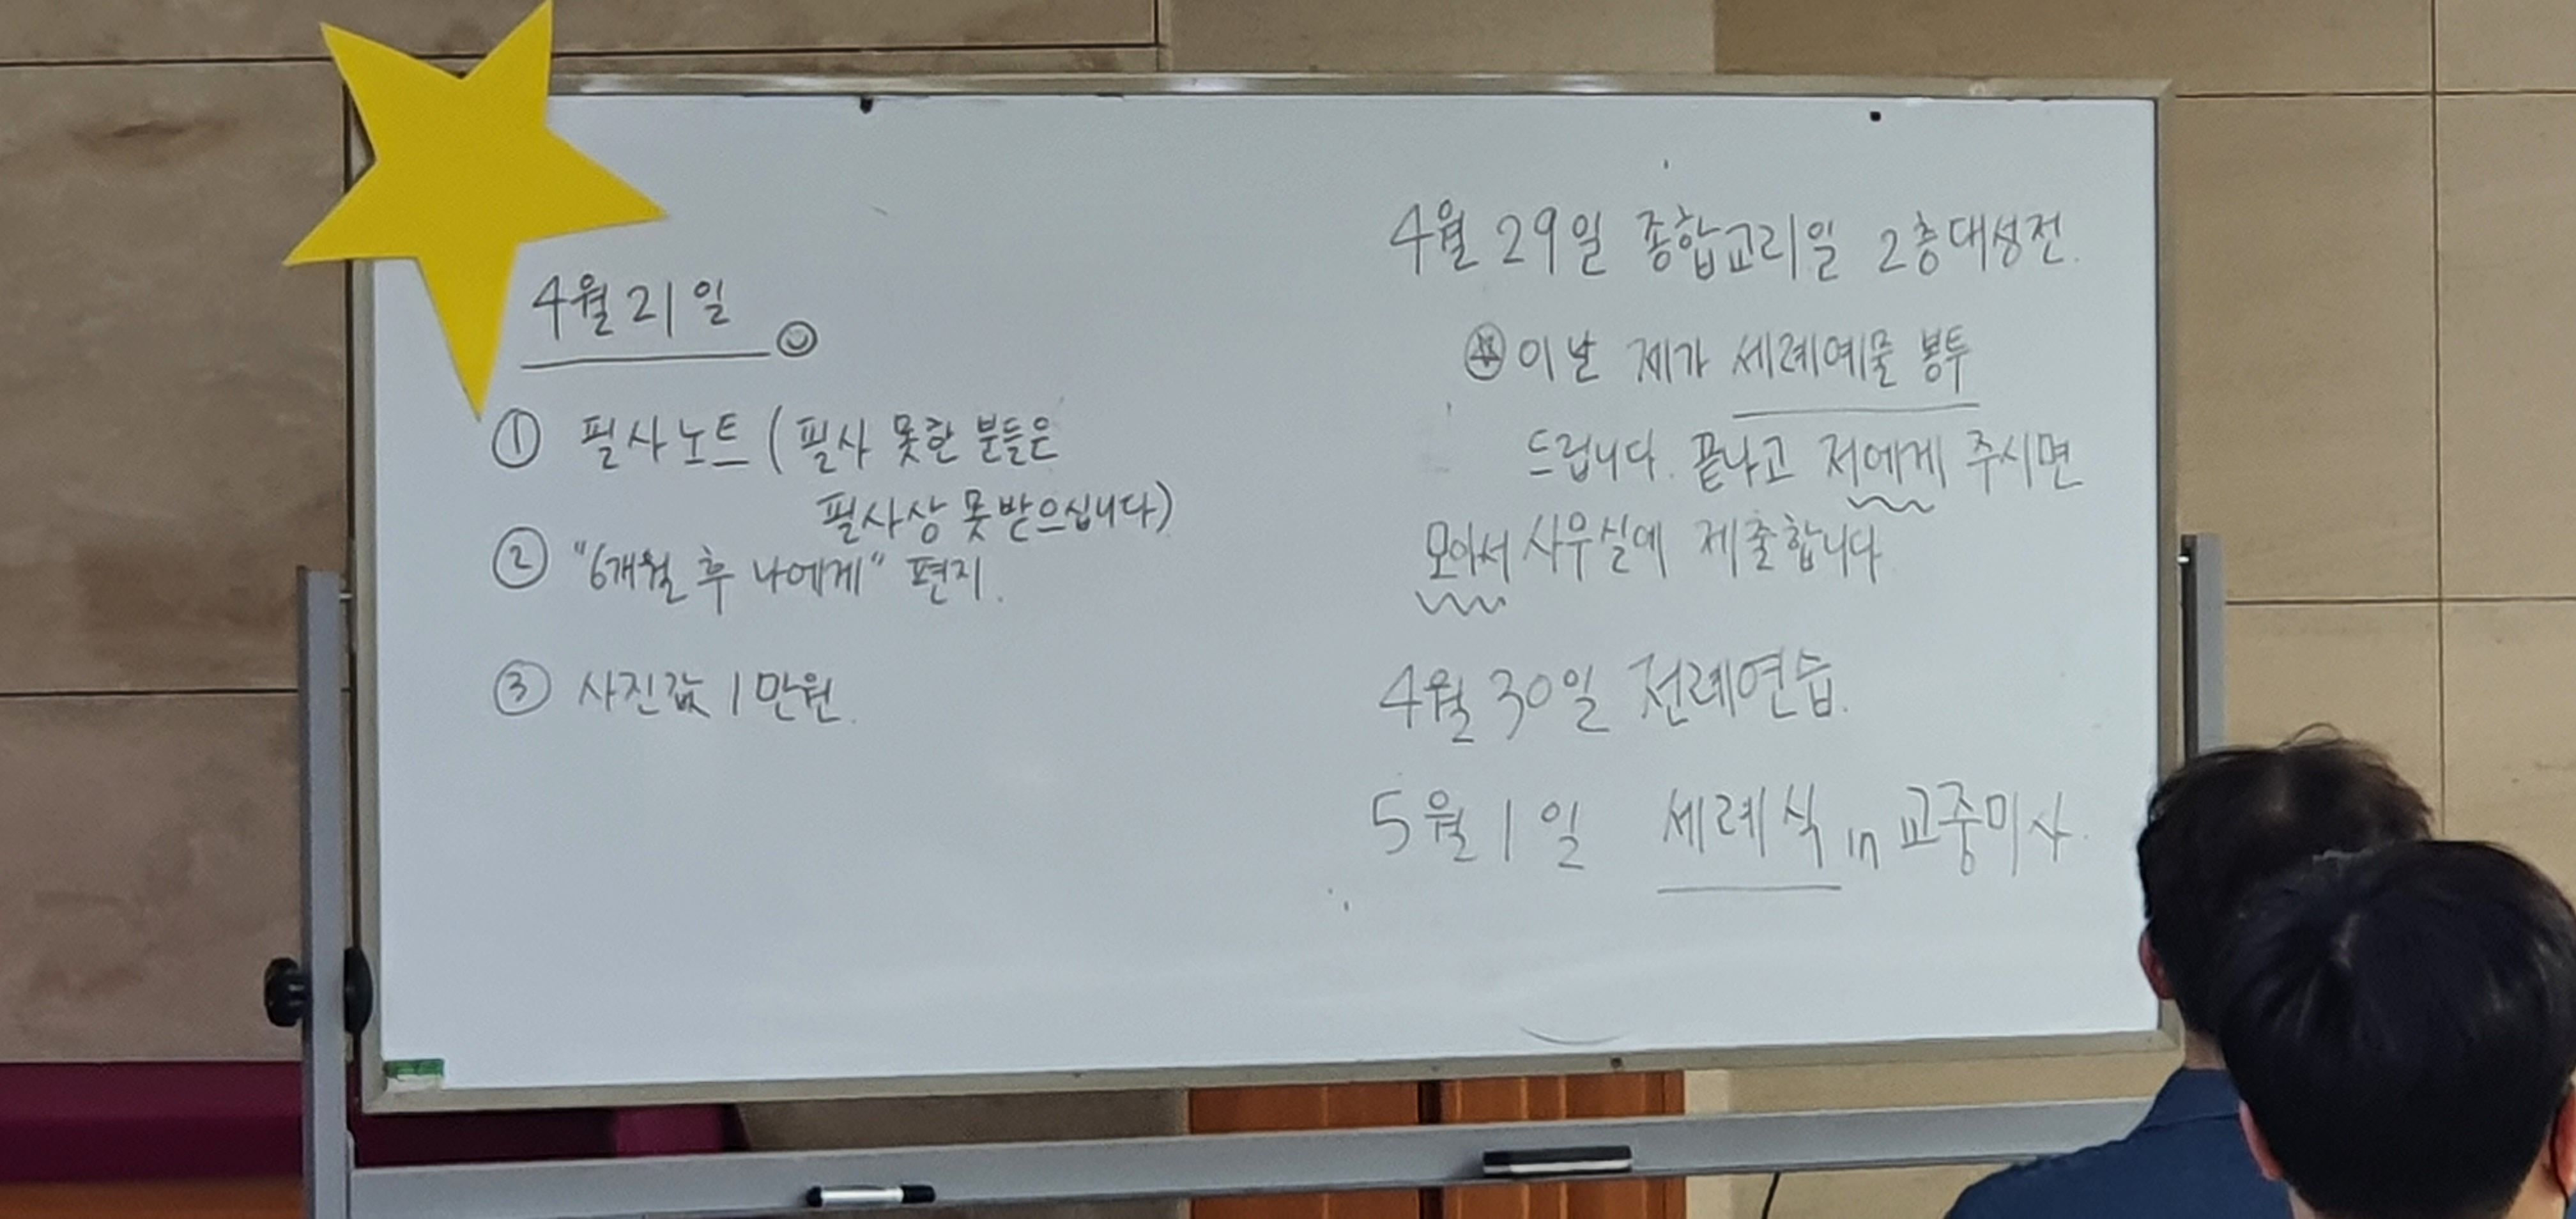 4월 21일
① 필사노트 (필사 못한 분들은
필사상 못 받으십니다)
② "6개월 후 나에게" 편지.
③ 사진값 1만원.
4월 29일 종합교리일 2층대성전.
이날 제가 세례예물 봉투
드립니다. 끝나고 저에게 주시면
모아서 사무실에 제출합니다
4월 30일 전례연습.
5월 1일 세례식 in 교중미사.